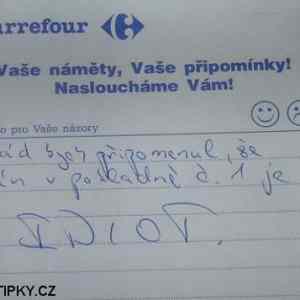 arrefour
Vaše náměty, Vaše připomínky!
Nasloucháme Vám!
o pro Vaše názory
ád bych připomenul, že
án v pokladně č. 1 je
IDIOT.
TIPKY.CZ